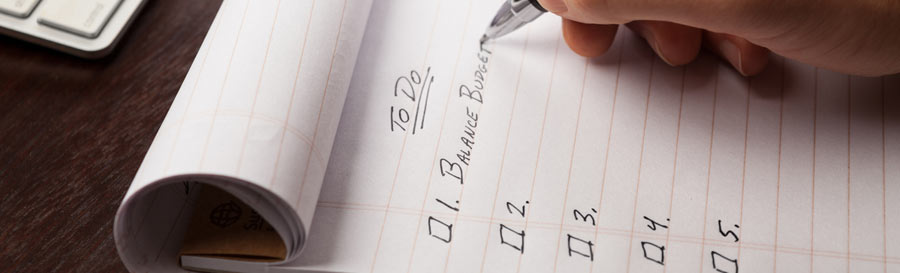 To Do
☐ 1. Balance Budget
☐ 2.
☐ 3.
☐ 4.
☐ 5.